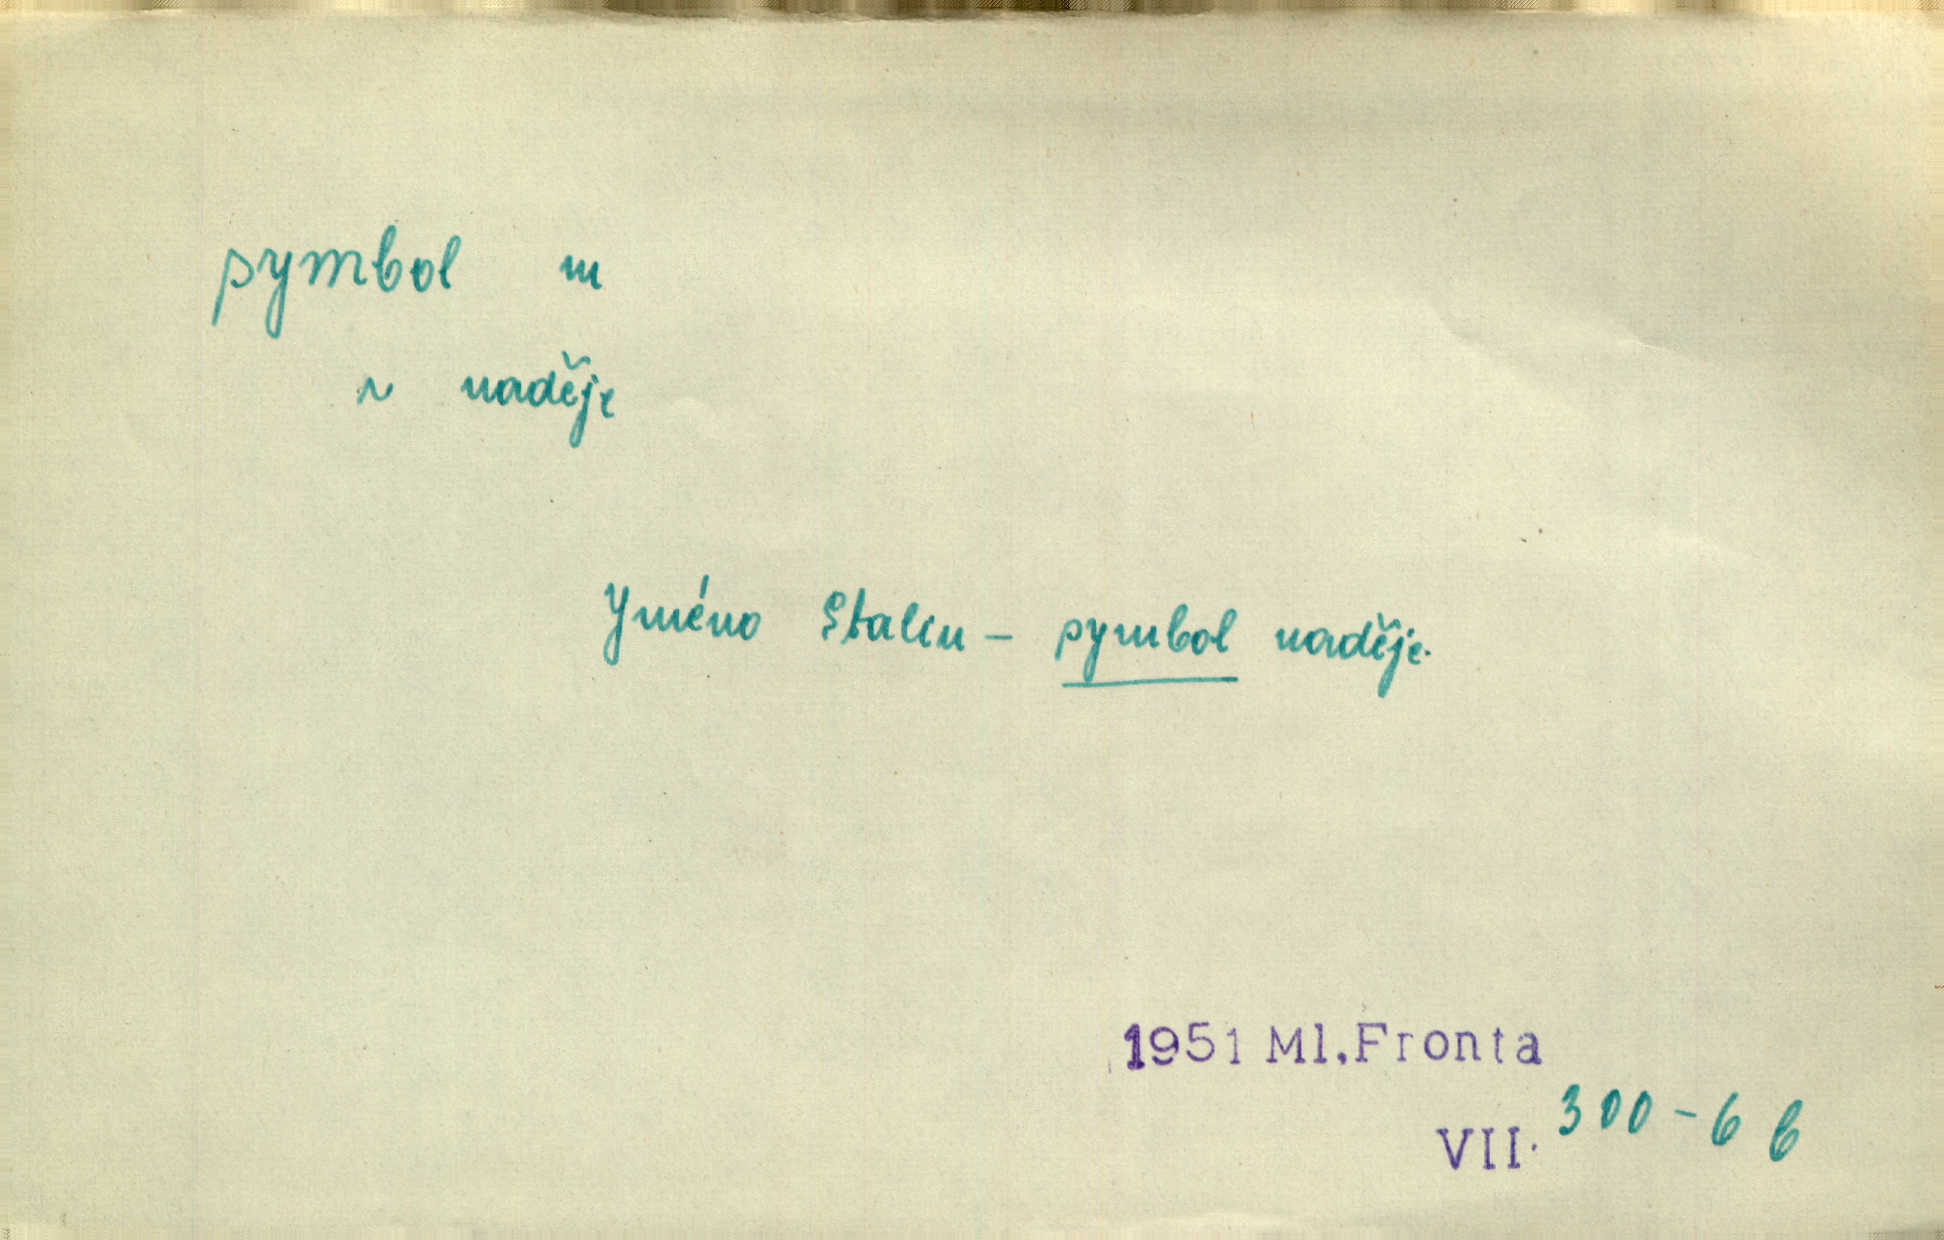 symbol m
~ naděje
Jméno Stalin – symbol naděje.
1951 Ml.Fronta
VII. 300-6 6